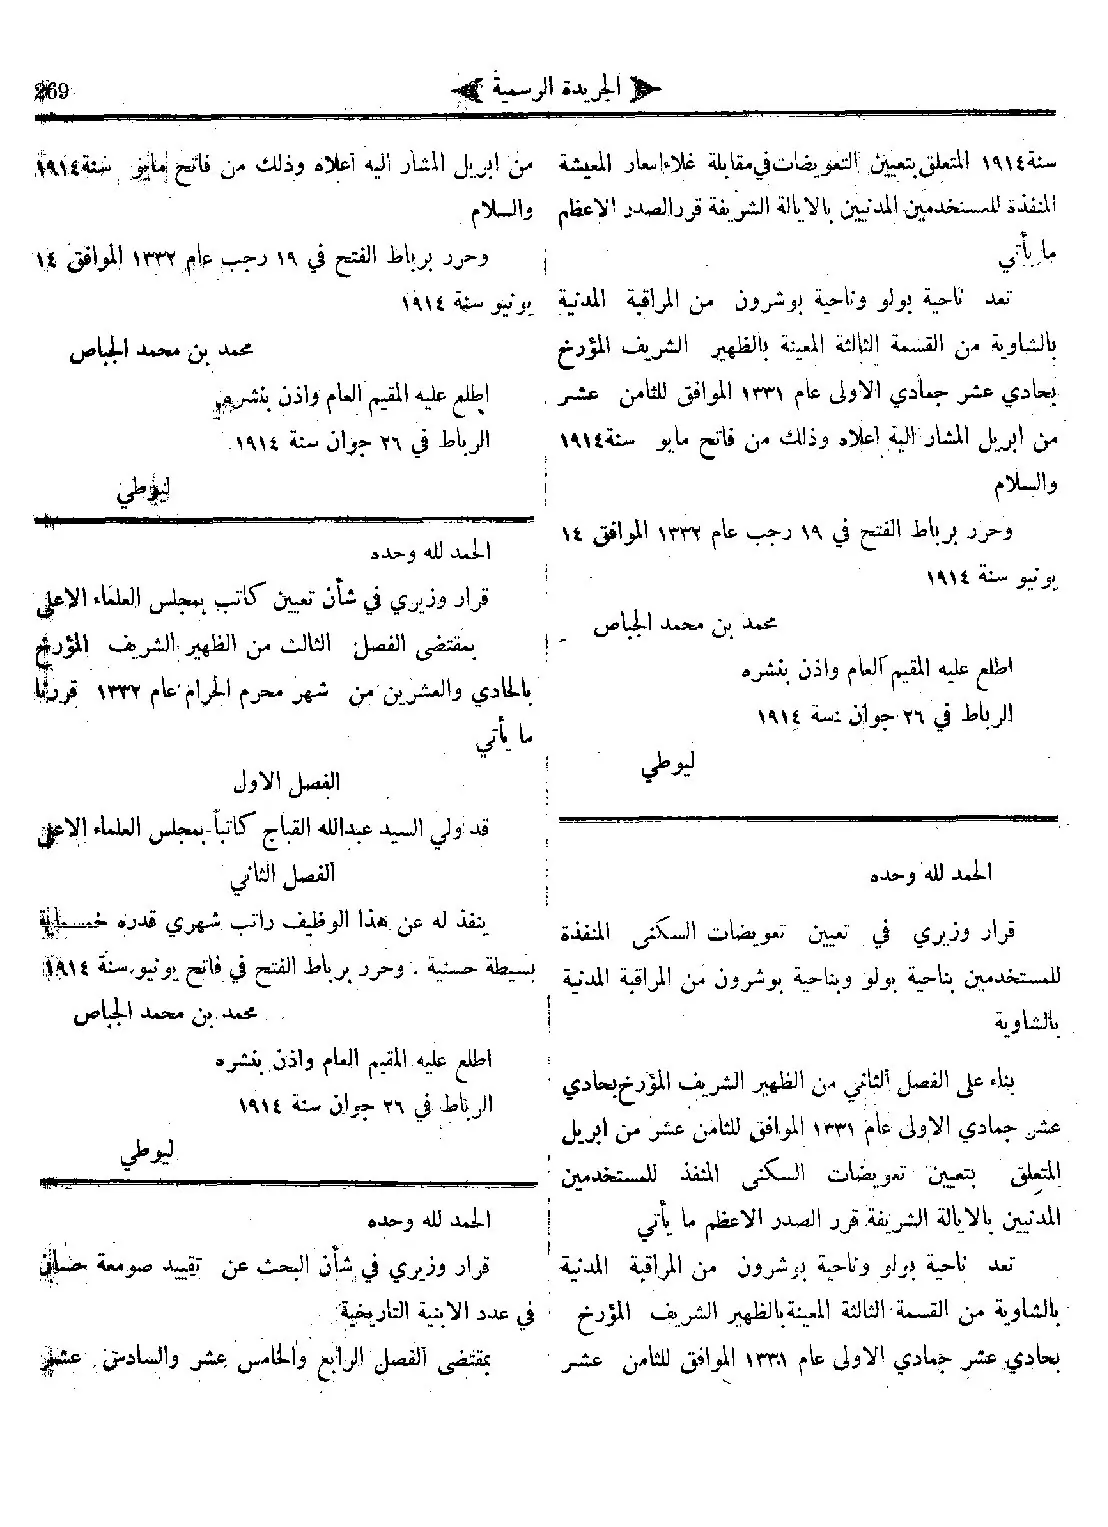 الجريدة الرسمية
269
سنة ١٩١٤ المتعلق بتعيين التعويضات في مقابلة غلاء اسعار المعيشة
المنفذة للمستخدمين المدنيين بالايالة الشريفة قرر الصدر الاعظم
ما يأتي
تعد ناحية بولو وناحية بوشرون من المراقبة المدنية
بالشاوية من القسمة الثالثة المعينة بالظهير الشريف المؤرخ
بحادي عشر جمادي الاولى عام ١٣٣١ الموافق للثامن عشر
من ابريل المشار اليه اعلاه وذلك من فاتح مايو سنة ١٩١٤
والسلام
وحرر برباط الفتح في ١٩ رجب عام ١٣٣٢ الموافق ١٤
يونيو سنة ١٩١٤
محمد بن محمد الجباص
اطلع عليه المقيم العام واذن بنشره
الرباط في ٢٦ جوان سنة ١٩١٤
ليوطي
الحمد لله وحده
قرار وزيري في تعيين تعويضات السكنى المنفذة
للمستخدمين بناحية بولو وبناحية بوشرون من المراقبة المدنية
بالشاوية
بناء على الفصل الثاني من الظهير الشريف المؤرخ بحادي
عشر جمادي الاولى عام ١٣٣١ الموافق للثامن عشر من ابريل
المتعلق بتعيين تعويضات السكنى المنفذ للمستخدمين
المدنيين بالايالة الشريفة قرر الصدر الاعظم ما يأتي
تعد ناحية بولو وناحية بوشرون من المراقبة المدنية
بالشاوية من القسمة الثالثة المعينة بالظهير الشريف المؤرخ
بحادي عشر جمادي الاولى عام ١٣٣١ الموافق للثامن عشر
من ابريل المشار اليه اعلاه وذلك من فاتح مايو سنة ١٩١٤
والسلام
وحرر برباط الفتح في ١٩ رجب عام ١٣٣٢ الموافق ١٤
يونيو سنة ١٩١٤
محمد بن محمد الجباص
اطلع عليه المقيم العام واذن بنشره
الرباط في ٢٦ جوان سنة ١٩١٤
ليوطي
الحمد لله وحده
قرار وزيري في شأن تعيين كاتب بمجلس العلماء الاعلى
بمقتضى الفصل الثالث من الظهير الشريف المؤرخ
بالحادي والعشرين من شهر محرم الحرام عام ١٣٣٢ قررنا
ما يأتي
الفصل الاول
قد ولي السيد عبدالله القباج كاتباً بمجلس العلماء الاعلى
الفصل الثاني
ينفذ له عن هذا الوظيف راتب شهري قدره خمسماية
بسيطة حسنية . وحرر برباط الفتح في فاتح يونيو سنة ١٩١٤
محمد بن محمد الجباص
اطلع عليه المقيم العام واذن بنشره
الرباط في ٢٦ جوان سنة ١٩١٤
ليوطي
الحمد لله وحده
قرار وزيري في شأن البحث عن تقييد صومعة حسان
في عدد الابنية التاريخية
بمقتضى الفصل الرابع والخامس عشر والسادس عشر